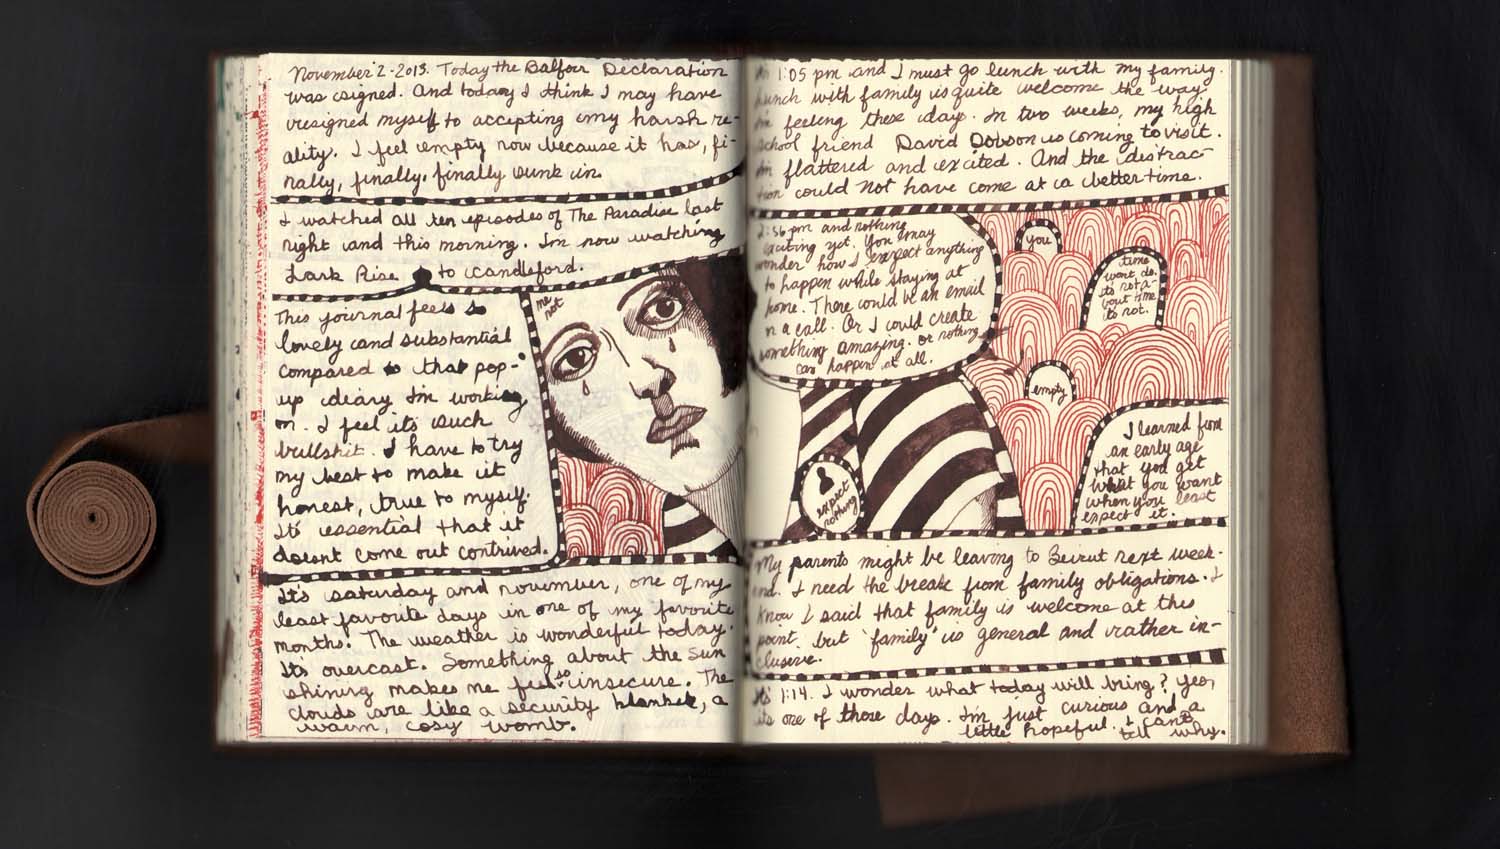 November 2-2013. Today the Balfour Declaration
was signed. And today I think I may have
resigned myself to accepting my harsh re-
ality. I feel empty now because it has, fi-
nally, finally, finally sunk in.
I watched all ten episodes of The Paradise last
night and this morning. Im now watching
Lark Rise to Candleford.
This journal feels so
lovely and substantial
compared to that pop-
up diary Im working
on. I feel its such
bullshit. I have to try
my best to make it
honest, true to myself.
Its essential that it
doesnt come out contrived.
me
not
It's saturday and november, one of my
least favorite days in one of my favorite
months. The weather is wonderful today.
Its overcast. Something about the sun
shining makes me feel so insecure. The
clouds are like a security blanket, a
warm, cosy womb.
1:05 pm and I must go lunch with my family.
Lunch with family is quite welcome the way
Im feeling these days. In two weeks, my high
school friend David Dobson is coming to visit.
Im flattered and excited. And the distrac-
tion could not have come at a better time.
2:56 pm and nothing
exciting yet. You may
wonder how I expect anything
to happen while staying at
home. There could be an email
n a call. Or I could create
something amazing. or nothing
can happen at all.
you
time
wont do.
its not a-
bout time
its not.
empty
I learned from
an early age
that you get
what you want
when you least
expect it.
expect
nothing
My parents might be leaving to Beirut next week-
end. I need the break from family obligations. I
know I said that family is welcome at this
point. but 'family' is general and rather in-
clusive.
Its 1:14. I wonder what today will bring? Yes,
its one of those days. Im just curious and a
little hopeful. I can't
tell why.